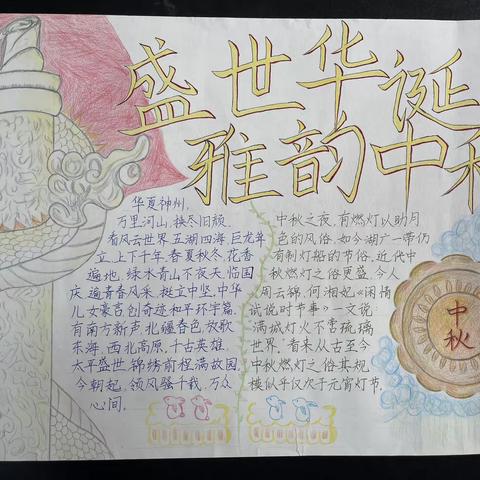 盛世华诞
雅韵中秋
华夏神州，
万里河山，换尽旧颜，
看风云世界，五湖四海，巨龙羊
立，上下千年，春夏秋冬，花香
遍地，绿水青山不夜天，临国
庆，遍青春风采，挺立中坚，中华
儿女豪言创奇迹和平环宇篇，
有南方新声，北疆春色，放歌
东海，西北高原，十古英雄，
太平盛世，锦绣前程满故园，
今朝起，领风骚十载，万众
心间，
中秋之夜，有燃灯以助月
色的风俗，如今湖广一带仍
有制灯船的节俗，近代中
秋燃灯之俗更盛，今人
周云锦、何湘妃《闲情
试说时节事》一文说：
满城灯火不啻琉璃
世界，看来从古至今
中秋燃灯之俗其规
模似乎仅次于元宵灯节，
中秋